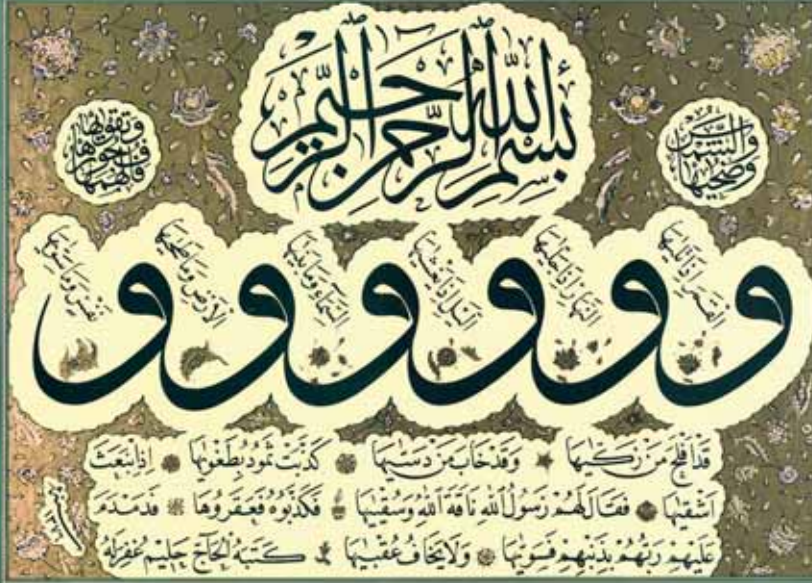 بِسْمِ اللّٰهِ الرَّحْمٰنِ الرَّحِيمِ
وَالشَّمْسِ وَضُحٰيهَا
و القَمَرِ اِذَا تَلٰيهَا
و النَّهَارِ اِذَا جَلّٰيهَا
و الَّيْلِ اِذَا يَغْشٰيهَا
و السَّمَاءِ وَمَا بَنٰيهَا
و الْاَرْضِ وَمَا طَحٰيهَا
و نَفْسٍ وَمَا سَوّٰيهَا
فَاَلْهَمَهَا فُجُورَهَا وَتَقْوٰيهَا
قَدْ اَفْلَحَ مَنْ زَكّٰيهَا وَقَدْ خَابَ مَنْ دَسّٰيهَا كَذَّبَتْ ثَمُودُ بِطَغْوٰيهَا اِذِ انْبَعَثَ
اَشْقٰيهَا فَقَالَ لَهُمْ رَسُولُ اللّٰهِ نَاقَةَ اللّٰهِ وَسُقْيٰيهَا فَكَذَّبُوهُ فَعَقَرُوهَا فَدَمْدَمَ
عَلَيْهِمْ رَبُّهُمْ بِذَنْبِهِمْ فَسَوّٰيهَا وَلَا يَخَافُ عُقْبٰيهَا كَتَبَهُ الْحَاجّ حَلِيمْ غُفِرَلَهُ